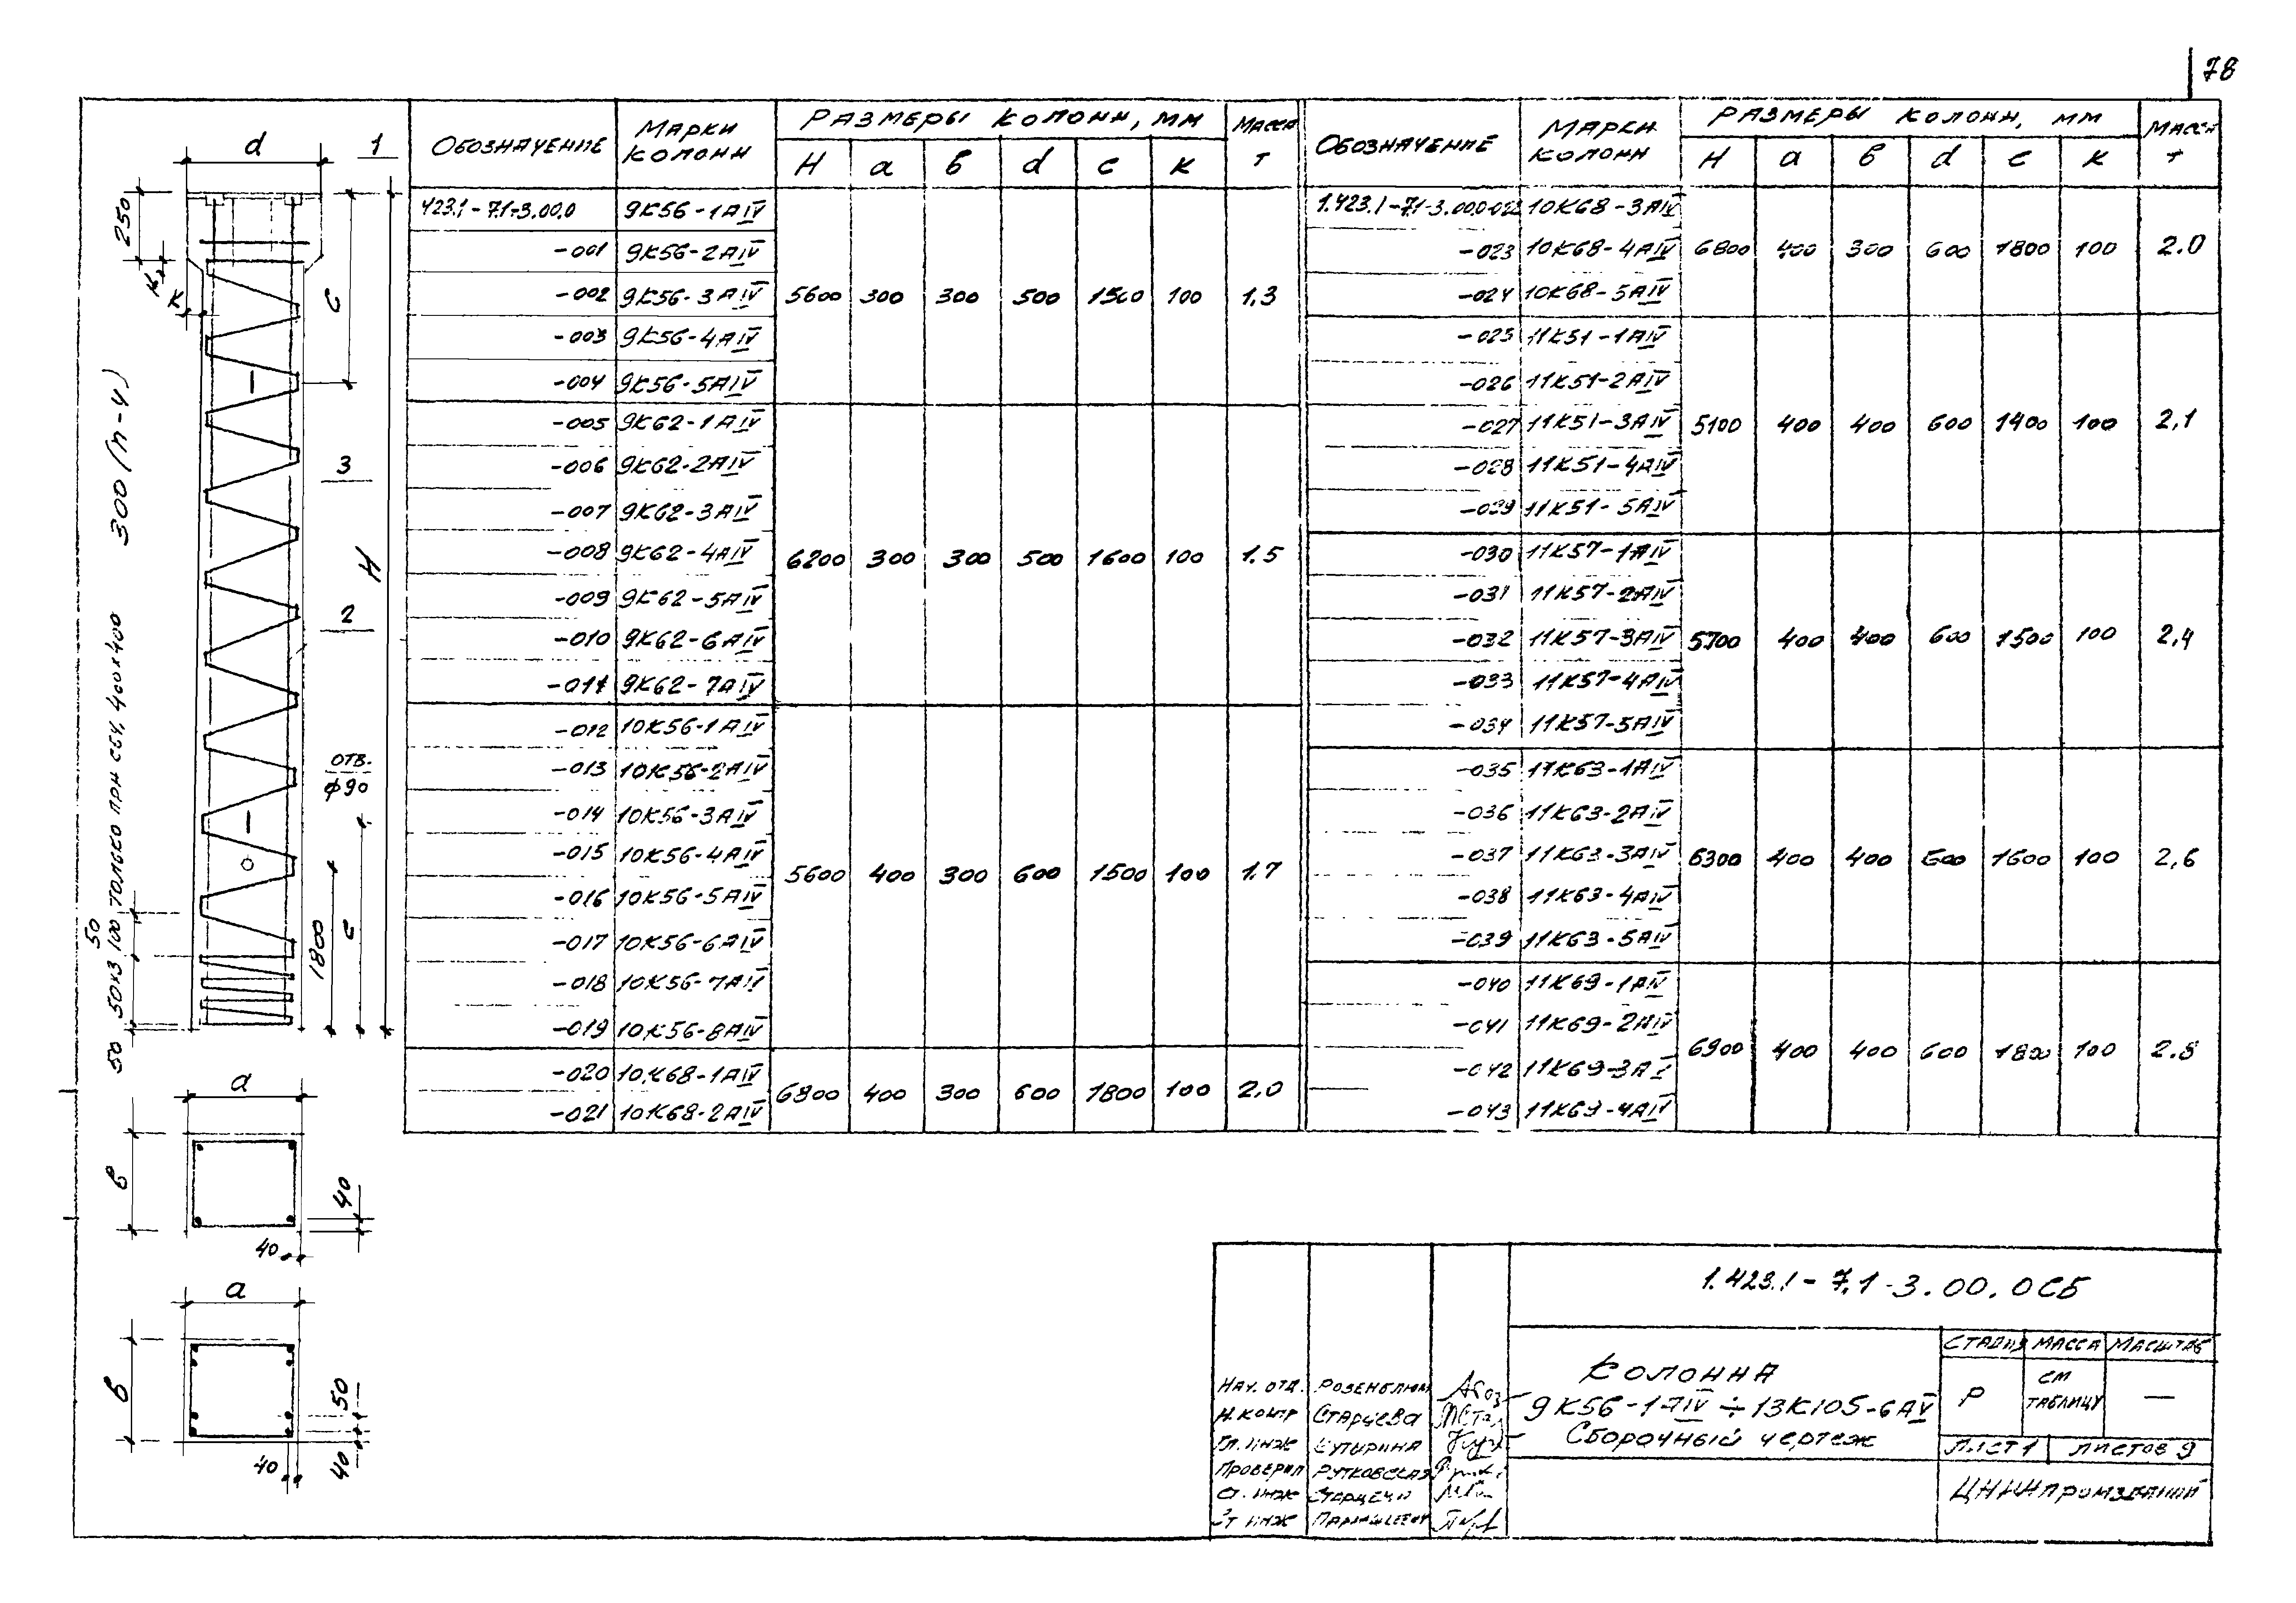 78
ОБОЗНАЧЕНИЕ МАРКИ КОЛОНН РАЗМЕРЫ КОЛОНН, ММ МАССА Т
H a в d c к
423.1-7.1-3.00.0 9К56-1АIV
-001 9К56-2АIV
-002 9К56-3АIV 5600 300 300 500 1500 100 1.3
-003 9К56-4АIV
-004 9К56-5АIV
-005 9К62-1АIV
-006 9К62-2АIV
-007 9К62-3АIV
-008 9К62-4АIV 6200 300 300 500 1600 100 1.5
-009 9К62-5АIV
-010 9К62-6АIV
-011 9К62-7АIV
-012 10К56-1АIV
-013 10К56-2АIV
-014 10К56-3АIV
-015 10К56-4АIV 5600 400 300 600 1500 100 1.7
-016 10К56-5АIV
-017 10К56-6АIV
-018 10К56-7А
-019 10К56-8АIV
-020 10К68-1АIV 6800 400 300 600 1800 100 2.0
-021 10К68-2АIV
ОБОЗНАЧЕНИЕ МАРКИ КОЛОНН РАЗМЕРЫ КОЛОНН, ММ МАССА Т
H a в d c к
1.423.1-7.1-3.00.0-022 10К68-3АIV
-023 10К68-4АIV 6800 400 300 600 1800 100 2.0
-024 10К68-5АIV
-025 11К51-1АIV
-026 11К51-2АIV
-027 11К51-3АIV 5100 400 400 600 1400 100 2,1
-028 11К51-4АIV
-029 11К51-5АIV
-030 11К57-1АIV
-031 11К57-2АIV
-032 11К57-3АIV 5700 400 400 600 1500 100 2,4
-033 11К57-4АIV
-034 11К57-5АIV
-035 11К63-1АIV
-036 11К63-2АIV
-037 11К63-3АIV 6300 400 400 600 1600 100 2,6
-038 11К63-4АIV
-039 11К63-5АIV
-040 11К69-1АIV
-041 11К69-2АIV
-042 11К69-3А 6900 400 400 600 1800 100 2.8
-043 11К69-4АIV
d 1
250
К
К
c
3
H
2
ОТВ.
ф90
1800
c
300 (n-4)
50 50х3 100 ТОЛЬКО ПРИ СЕЧ. 400х400
50
a
в
40
40
a
в
50
40
40
1.423.1-7.1-3.00.0СБ
КОЛОННА
9К56-1АIV ÷ 13К105-6АV
СБОРОЧНЫЙ ЧЕРТЕЖ
СТАДИЯ МАССА МАСШТАБ
Р СМ ТАБЛИЦУ —
ЛИСТ 1 ЛИСТОВ 9
ЦНИИПРОМЗДАНИЙ
НАЧ. ОТД. РОЗЕНБЛЮМ
Н.КОНТР СТАРЦЕВА
ГЛ.ИНЖ
ПРОВЕРИЛ РУТКОВСКАЯ
СТ. ИНЖ
СТ ИНЖ